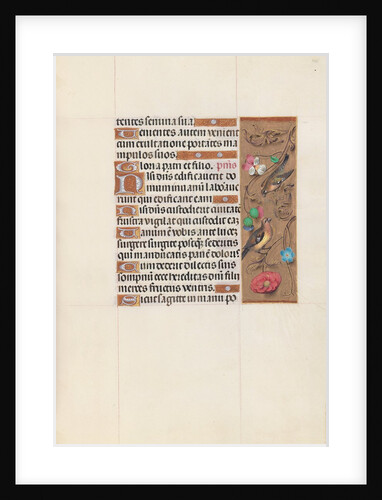 tentes semina sua.
Venientes autem venient
cum exultatione portātes ma
nipulos suos.
Gloria patri et filio. p̄mo
Nisi dn̄s edificauerit do
mum in uanū laboraue
runt qui edificant eam
Nisi dn̄s custodierit ciuitatē
frustra vigilat qui custodit eam
Vanum ē vobis ante lucē
surgere surgite postq̄ sederitis
qui manducatis panē doloris
Cum dederit dilectis suis
sompnū ecce hereditas dn̄i filii
merces fructus ventris.
Sicut sagitte in manu po